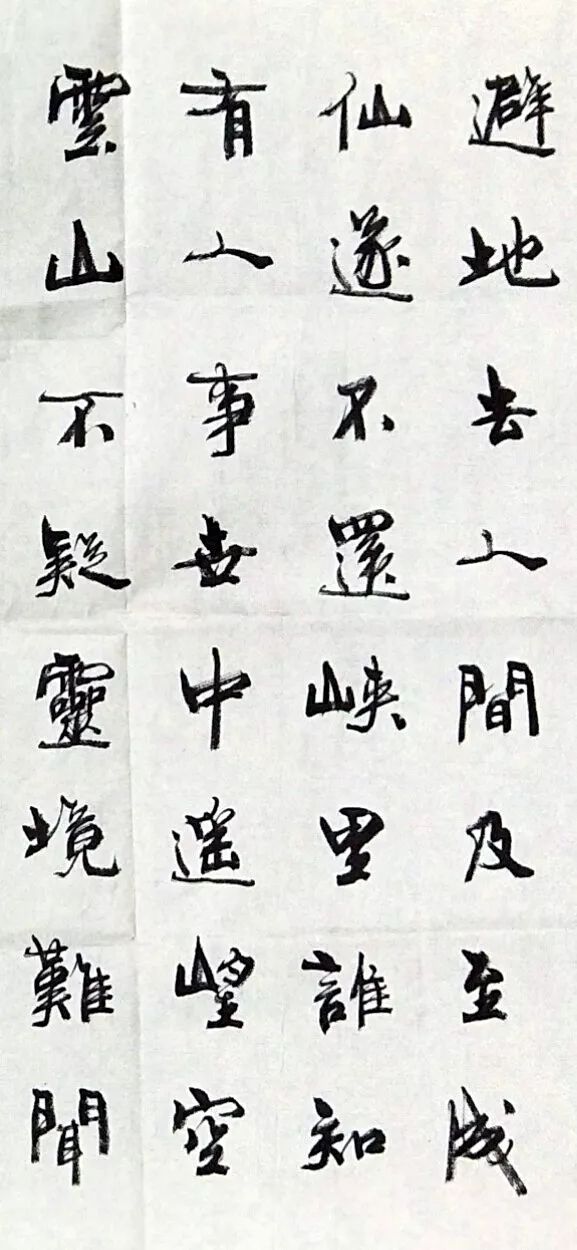 避地去人間及至成
仙遂不還峽里誰知
有人事世中遥望空
雲山不疑靈境難聞